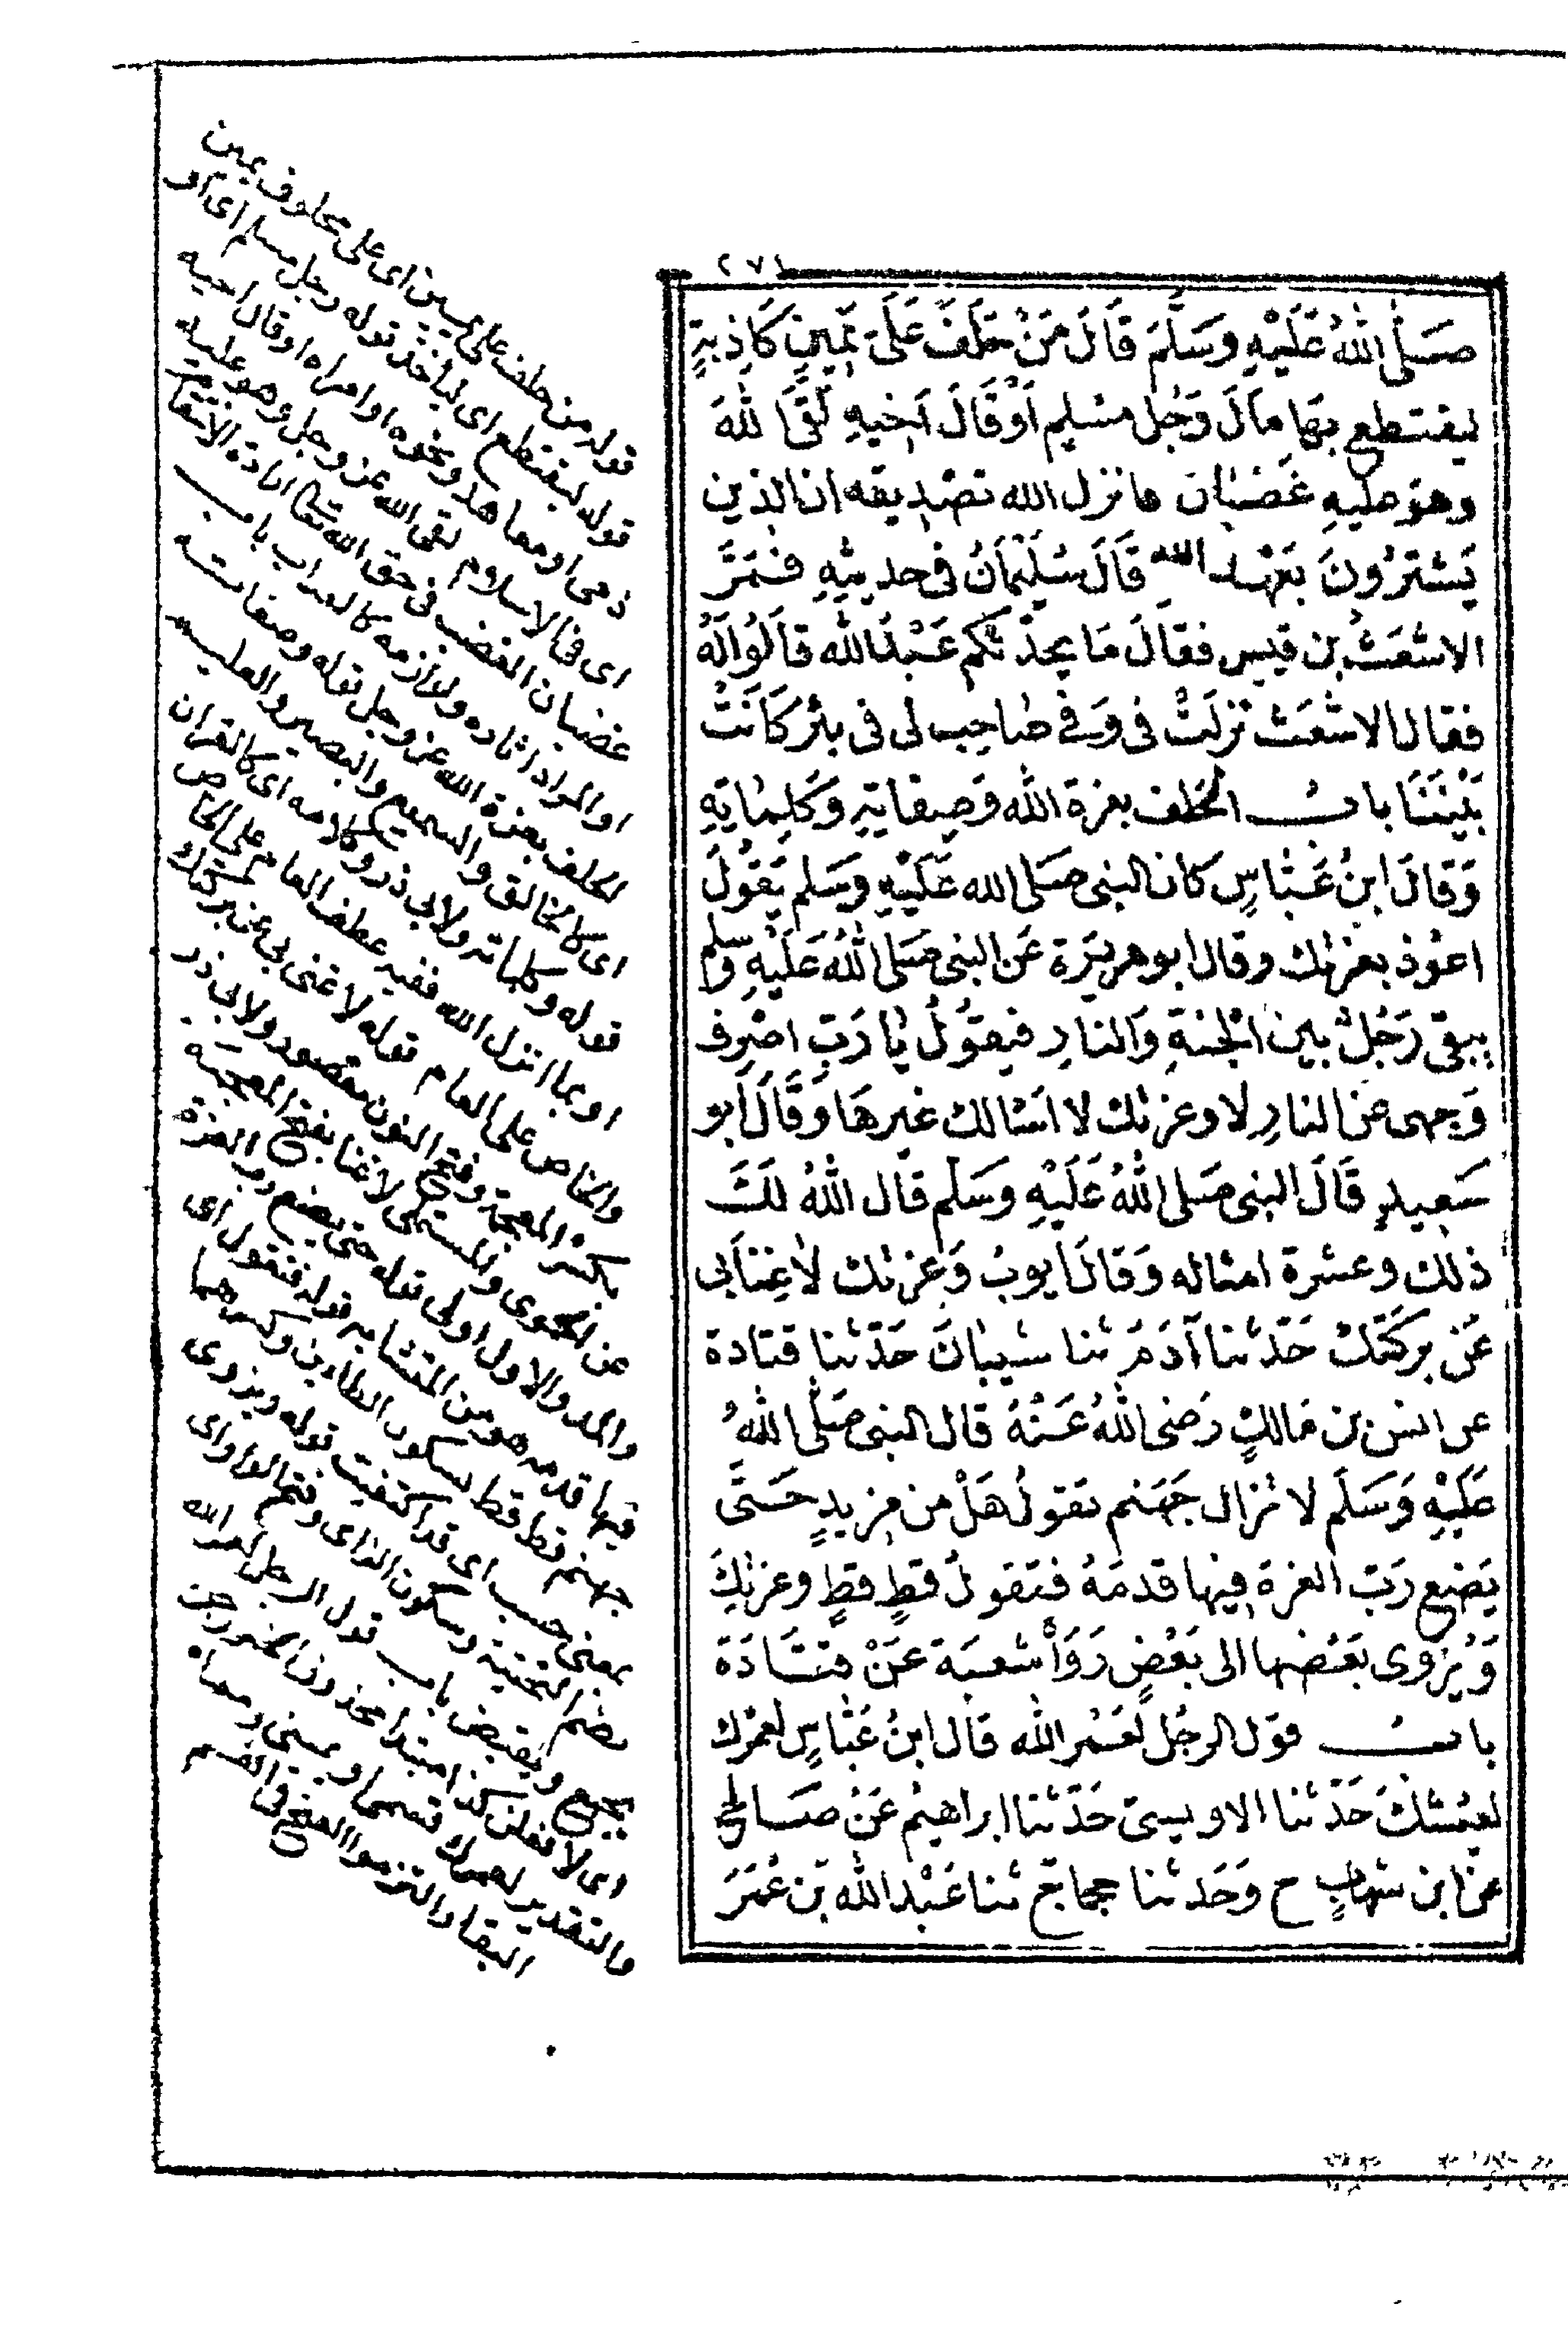 ٢٧١
صَلَّى اللهُ عَلَيْهِ وَسَلَّمَ قَالَ مَنْ حَلَفَ عَلَى يَمِينٍ كَاذِبَةٍ
ليقتطع بِهَا مَالَ رَجُلٍ مسْلِمٍ اَوْ قَالَ اَخِيهِ لَقِيَ اللهَ
وهوَ عليهِ غَضْبَان فانزل الله تصْدِيقه ان الذين
يَشْتَرُونَ بعَهْد الله قَالَ سُلَيْمَانُ فى حدِيثِهِ فَمَرَّ
الاشْعَثُ بن قيسٍ فقَالَ مَا يحدّثكم عَبْدُ الله قالُوا لَهُ
فقال الاشعَث نزلَتْ فىَّ وَفى صَاحِب لى فى بئر كَانَتْ
بَيْنَنَا باب الحَلف بعزة الله وَصِفاتِهِ وَكَلِمَاتِهِ
وَقالَ ابنُ عَبَّاسٍ كان النبى صَلى الله عَلَيْهِ وَسَلم يَقُولُ
اعوُذ بعزتك وقال ابو هريْرَة عَن النبى صَلى اللهُ عَلَيْهِ وسلم
يبقى رَجُلٌ بين الْجنةِ وَالنارِ فيقوُلُ يَا رَبِّ اصْرِف
وَجهى عَن النارِ لا وعزتك لا اسْالك غيرهَا وَقَالَ ابو
سَعِيدٍ قَالَ النبى صَلى اللهُ عَلَيْهِ وَسَلم قال اللهُ لكَ
ذلك وعشرة امثاله وَقالَ ايوبُ وَعزتك لا غِنَا بى
عَن بركَتكَ حَدّثنا آدَمَ ثنا شيبانُ حَدّثنا قتادة
عن انس بن مَالكٍ رَضى اللهُ عَنْهُ قال النبى صَلَّى اللهُ
عَلَيْهِ وَسَلَم لا تزال جَهَنم تقولُ هَلْ من مزيدٍ حَتَّى
يَضع رَبّ العزة فيها قدمَهُ فتقولُ قطٍ قطٍ وعزتِكَ
وَيُزْوى بَعْضها الى بَعْضٍ رَوَاْ شعبَة عَنْ قتَادَة
باب قوْل الرجُل لعَمْر الله قال ابنُ عَبَّاسٍ لعَمْرك
لعَيْشكَ حَدّثنا الاويسىّ حَدّثنا ابراهيمُ عَنْ صَالح
عَن ابن شهَابٍ ح وَحَدثنا حجاج ثنا عَبْد الله بن عُمَرَ
قوله من حلف على يمين اى على محلوف يمين
قوله ليقتطع اى ليأخذ قوله رجل مسلم اى او
ذمى او معاهد ونحوه او امراه او قال اخيه
اى فى الاسلام لقى الله عز وجل وهو عليه
غضبان الغضب فى حق الله تعالى ارادة الانتقام
او المراد اثاره ولوازمه كالعذاب باب
الحلف بعزة الله عز وجل قوله وصفاته
اى كالخالق والسميع والبصير والعليم
قوله وكلماته ولابى ذر وكلامه اى كالقران
او بما انزل الله ففيه عطف العام على الخاص
والخاص على العام قوله لا غنى بى عن بركتك
بكسر المعجمة وفتح النون مقصور ولابى ذر
عن الحموى والمستملى لا غنا بفتح المعجمة
والمد والاول اولى قوله حتى يضع رب العزة
فيها قدمه هو من المتشابه قوله فتقول اى
جهنم قط قط بسكون الطاءين وكسرهما
بمعنى حسب اى قد اكتفيت قوله ويزوى
بضم التحتية وسكون الزاى وفتح الواو اى
يجمع ويقبض باب قول الرجل لعمر الله
اى لا فعلن كذا مبتدا محذوف الخبر وجوبا
والتقدير لعمرك قسمى او يمينى ومعناه
البقاء والتزموا الفتح فى القسم